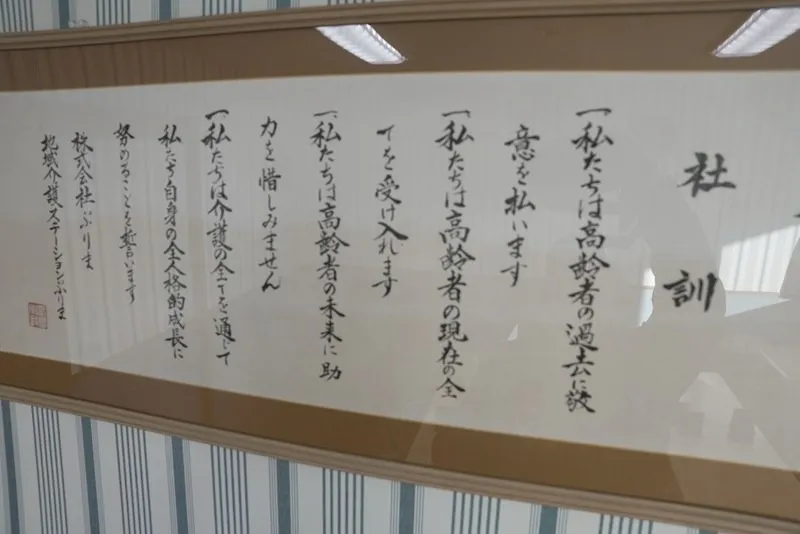 社訓
一、私たちは高齢者の過去に敬
意を払います
一、私たちは高齢者の現在の全
てを受け入れます
一、私たちは高齢者の未来に助
力を惜しみません
一、私たちは介護の全てを通じて
私たち自身の全人格的成長に
努めることを誓います
株式会社ぷりま
地域介護ステーションぷりま